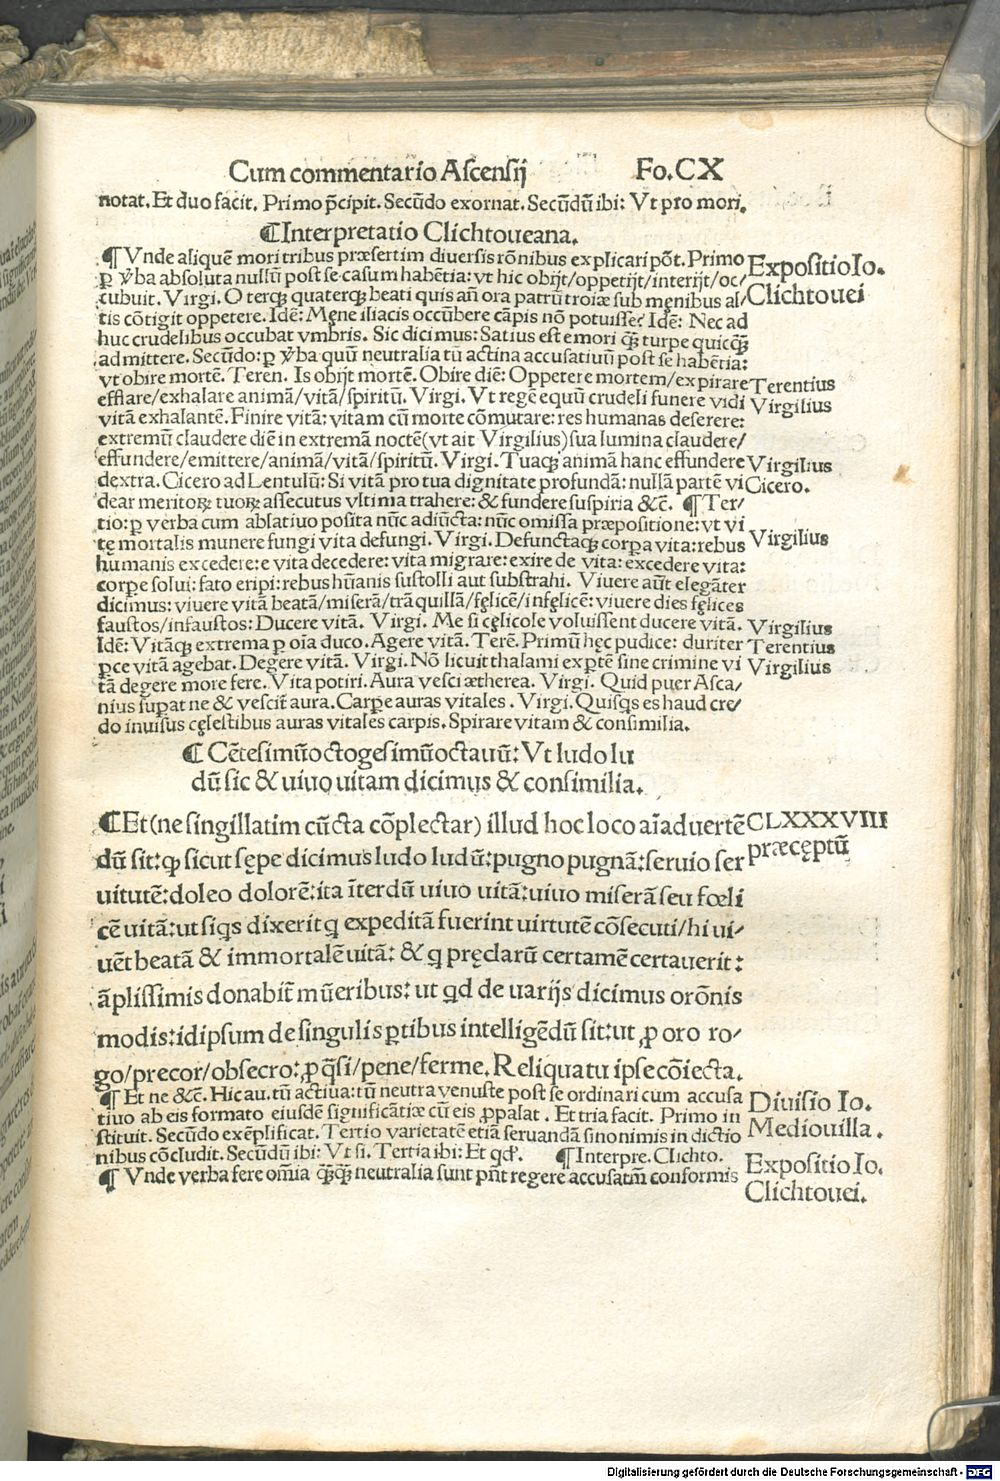 Cum commentario Ascensij Fo. CX
notat. Et duo facit. Primo p̄cipit. Secūdo exornat. Secūdū ibi: Vt pro mori.
¶Interpretatio Clichtoueana.
¶ Vnde aliquē mori tribus præsertim diuersis rōnibus explicari pōt. Primo
ꝑ v̄ba absoluta nullū post se casum habētia: vt hic obijt/oppetijt/interijt/oc⸗
cubuit. Virgi. O terqꝫ quaterqꝫ beati quis añ ora patrū troiæ sub męnibus al⸗
tis cōtigit oppetere. Idē: Mene iliacis occūbere cāpis nō potuisse? Idē: Nec ad
huc crudelibus occubat vmbris. Sic dicimus: Satius est emori qꝫ̄ turpe quicqꝫ̄
admittere. Secūdo: ꝑ v̄ba quū neutralia tū actina accusatiuū post se habētia:
vt obire mortē. Teren. Is obijt mortē. Obire diē: Oppetere mortem/expirare
efflare/exhalare animā/vitā/spiritū. Virgi. Vt regē equū crudeli funere vidi
vitā exhalantē. Finire vitā: vitam cū morte cōmutare: res humanas deserere:
extremū claudere diē in extremā noctē(vt ait Virgilius)sua lumina claudere/
effundere/emittere/animā/vitā/spiritū. Virgi. Tuaqꝫ animā hanc effundere
dextra. Cicero ad Lentulū: Si vitā pro tua dignitate profundā: nullā partē vi
dear meritoꝝ tuoꝝ assecutus vltima trahere: & fundere suspiria &c̄. ¶ Ter⸗
tio: ꝑ verba cum ablatiuo posita nūc adiūcta: nūc omissa præpositione: vt vi
tę mortalis munere fungi vita defungi. Virgi. Defunctaqꝫ corꝑa vita: rebus
humanis excedere: e vita decedere: vita migrare: exire de vita: excedere vita:
corꝑe solui: fato eripi: rebus hūanis sustolli aut substrahi. Viuere aūt elegāter
dicimus: viuere vitā beatā/miserā/trāquillā/fęlicē/infęlicē: viuere dies fęlices
faustos/infaustos: Ducere vitā. Virgi. Me si cęlicole voluissent ducere vitā.
Idē: Vitāqꝫ extrema ꝑ oīa duco. Agere vitā. Terē. Primū hęc pudice: duriter
ꝑce vitā agebat. Degere vitā. Virgi. Nō licuit thalami expertē sine crimine vi
tā degere more fere. Vita potiri. Aura vesci ætherea. Virgi. Quid puer Asca⸗
nius suꝑat ne & vescit̄ aura. Carpe auras vitales. Virgi. Quisqs es haud cre⸗
do inuisus cęlestibus auras vitales carpis. Spirare vitam & consimilia.
¶ Cētesimūoctogesimūoctauū: Vt ludo lu
dū sic & uiuo uitam dicimus & consimilia.
¶Et(ne singillatim cūcta cōplectar) illud hoc loco aīaduertē
dū sit: ꝙ sicut sępe dicimus ludo ludū: pugno pugnā: seruio ser
uitutē: doleo dolorē: ita īterdū uiuo uitā: uiuo miserā seu fœli
cē uitā: ut siqs dixerit q expeditā fuerint uirtutē cōsecuti/hi ui⸗
uēt beatā & immortalē uitā: & q pręclarū certamē certauerit:
āplissimis donabit̄ mūeribus: ut qd de uarijs dicimus orōnis
modis: idipsum de singulis ꝑtibus intelligēdū sit: ut ꝓ oro ro⸗
go/precor/obsecro: ꝓ q̄si/pene/ferme. Reliqua tu ipse cōiecta.
¶ Et ne &c̄. Hic au. tū actiua: tū neutra venuste post se ordinari cum accusa
tiuo ab eis formato eiusdē significatiæ cū eis ꝓpalat. Et tria facit. Primo in
stituit. Secūdo exēplificat. Tertio varietatē etiā seruandā sinonimis in dictio
nibus cōcludit. Secūdū ibi: Vt si. Tertia ibi: Et qd. ¶Interpre. Clichto.
¶ Vnde verba fere omīa qꝫ̄qꝫ̄ neutralia sunt pn̄t regere accusatm̄ conformis
Expositio Io.
Clichtouei
Terentius
Virgilius
Virgilius
Cicero.
Virgilius
Virgilius
Terentius
Virgilius
CLXXXVIII
præcęptū
Diuisio Io.
Mediouilla.
Expositio Io.
Clichtouei.
Digitalisierung gefördert durch die Deutsche Forschungsgemeinschaft - DFG